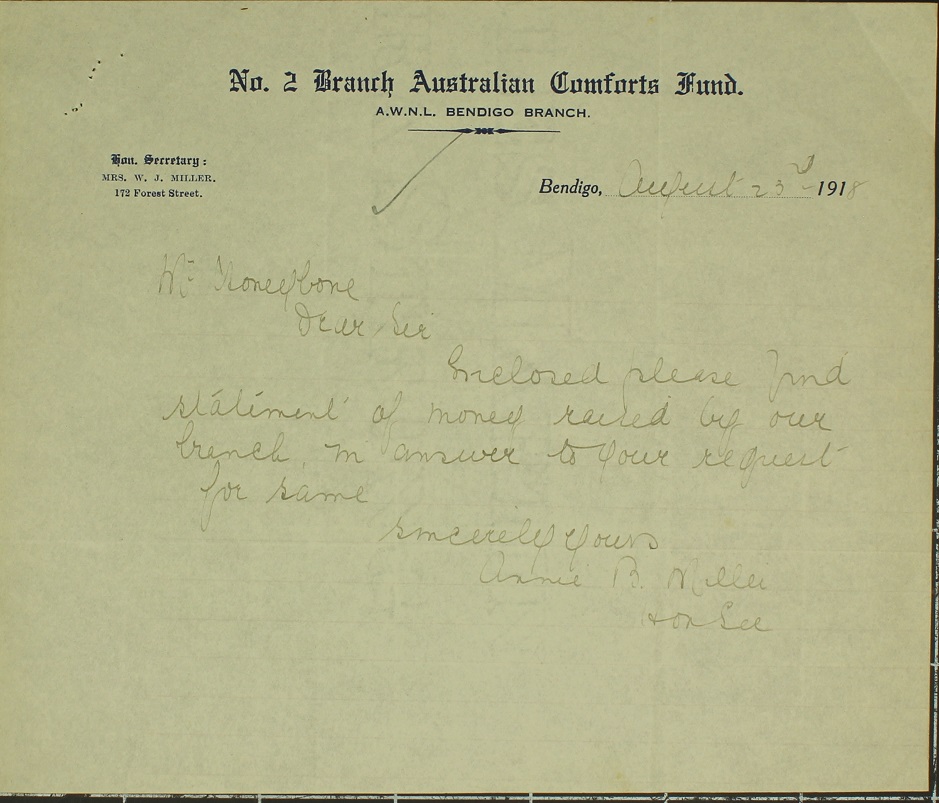 No. 2 Branch Australian Comforts Fund.
A.W.N.L. BENDIGO BRANCH.
Hon. Secretary:
MRS. W. J. MILLER.
172 Forest Street.
Bendigo, August 23rd 1918
Mr Honeybone
Dear Sir
Enclosed please find
statement of money raised by our
branch, in answer to your request
for same
Sincerely yours
Annie B. Miller
Hon Sec